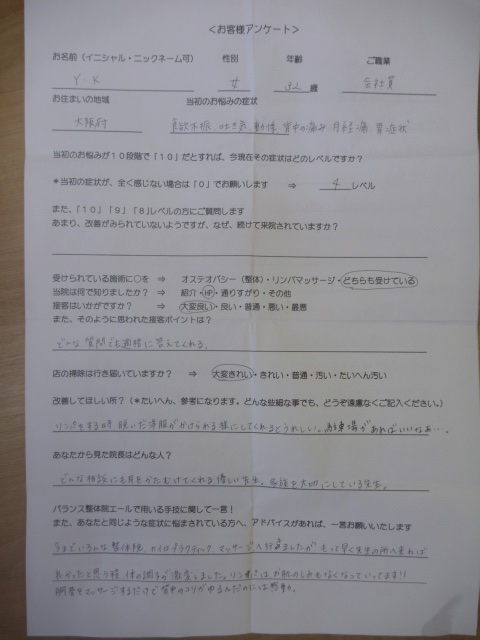 ＜お客様アンケート＞
お名前（イニシャル・ニックネーム可） 性別 年齢 ご職業
Y.K 女 32 歳 会社員
お住まいの地域 当初のお悩みの症状
大阪府 食欲不振 吐き気 動悸 背中の痛み 月経痛 胃症状
当初のお悩みが１０段階で「１０」だとすれば、今現在その症状はどのレベルですか？
＊当初の症状が、全く感じない場合は「０」でお願いします ⇒ 4 レベル
また、「１０」「９」「８」レベルの方にご質問します
あまり、改善がみられていないようですが、なぜ、続けて来院されていますか？
受けられている施術に○を ⇒ オステオパシー（整体）・リンパマッサージ・どちらも受けている
当院は何で知りましたか？ ⇒ 紹介・HP・通りすがり・その他
接客はいかがですか？ ⇒ 大変良い・良い・普通・悪い・最悪
また、そのように思われた接客ポイントは？
どんな質問でも適格に答えてくれる。
店の掃除は行き届いていますか？ ⇒ 大変きれい・きれい・普通・汚い・たいへん汚い
改善してほしい所？（＊たいへん、参考になります。どんな些細な事でも、どうぞ遠慮なくご記入ください。）
リンパをする時 脱いだ洋服がかけられる様にしてくれるとうれしい。駐車場があればいいなぁ…。
あなたから見た院長はどんな人？
どんな相談にも耳をかたむけてくれる優しい先生。家族を大切にしている先生。
バランス整体院エールで用いる手技に関して一言！
また、あなたと同じような症状に悩まされている方へ、アドバイスがあれば、一言お願いいたします
今までいろんな整体院 カイロプラクティック マッサージへ行きましたが もっと早く先生の所へ来れば
良かったと思う程 体の調子が激変しました。リンパでは お肌のしみもなくなっていってます!!
腕をマッサージするだけで背中のコリがゆるんだのには感動。